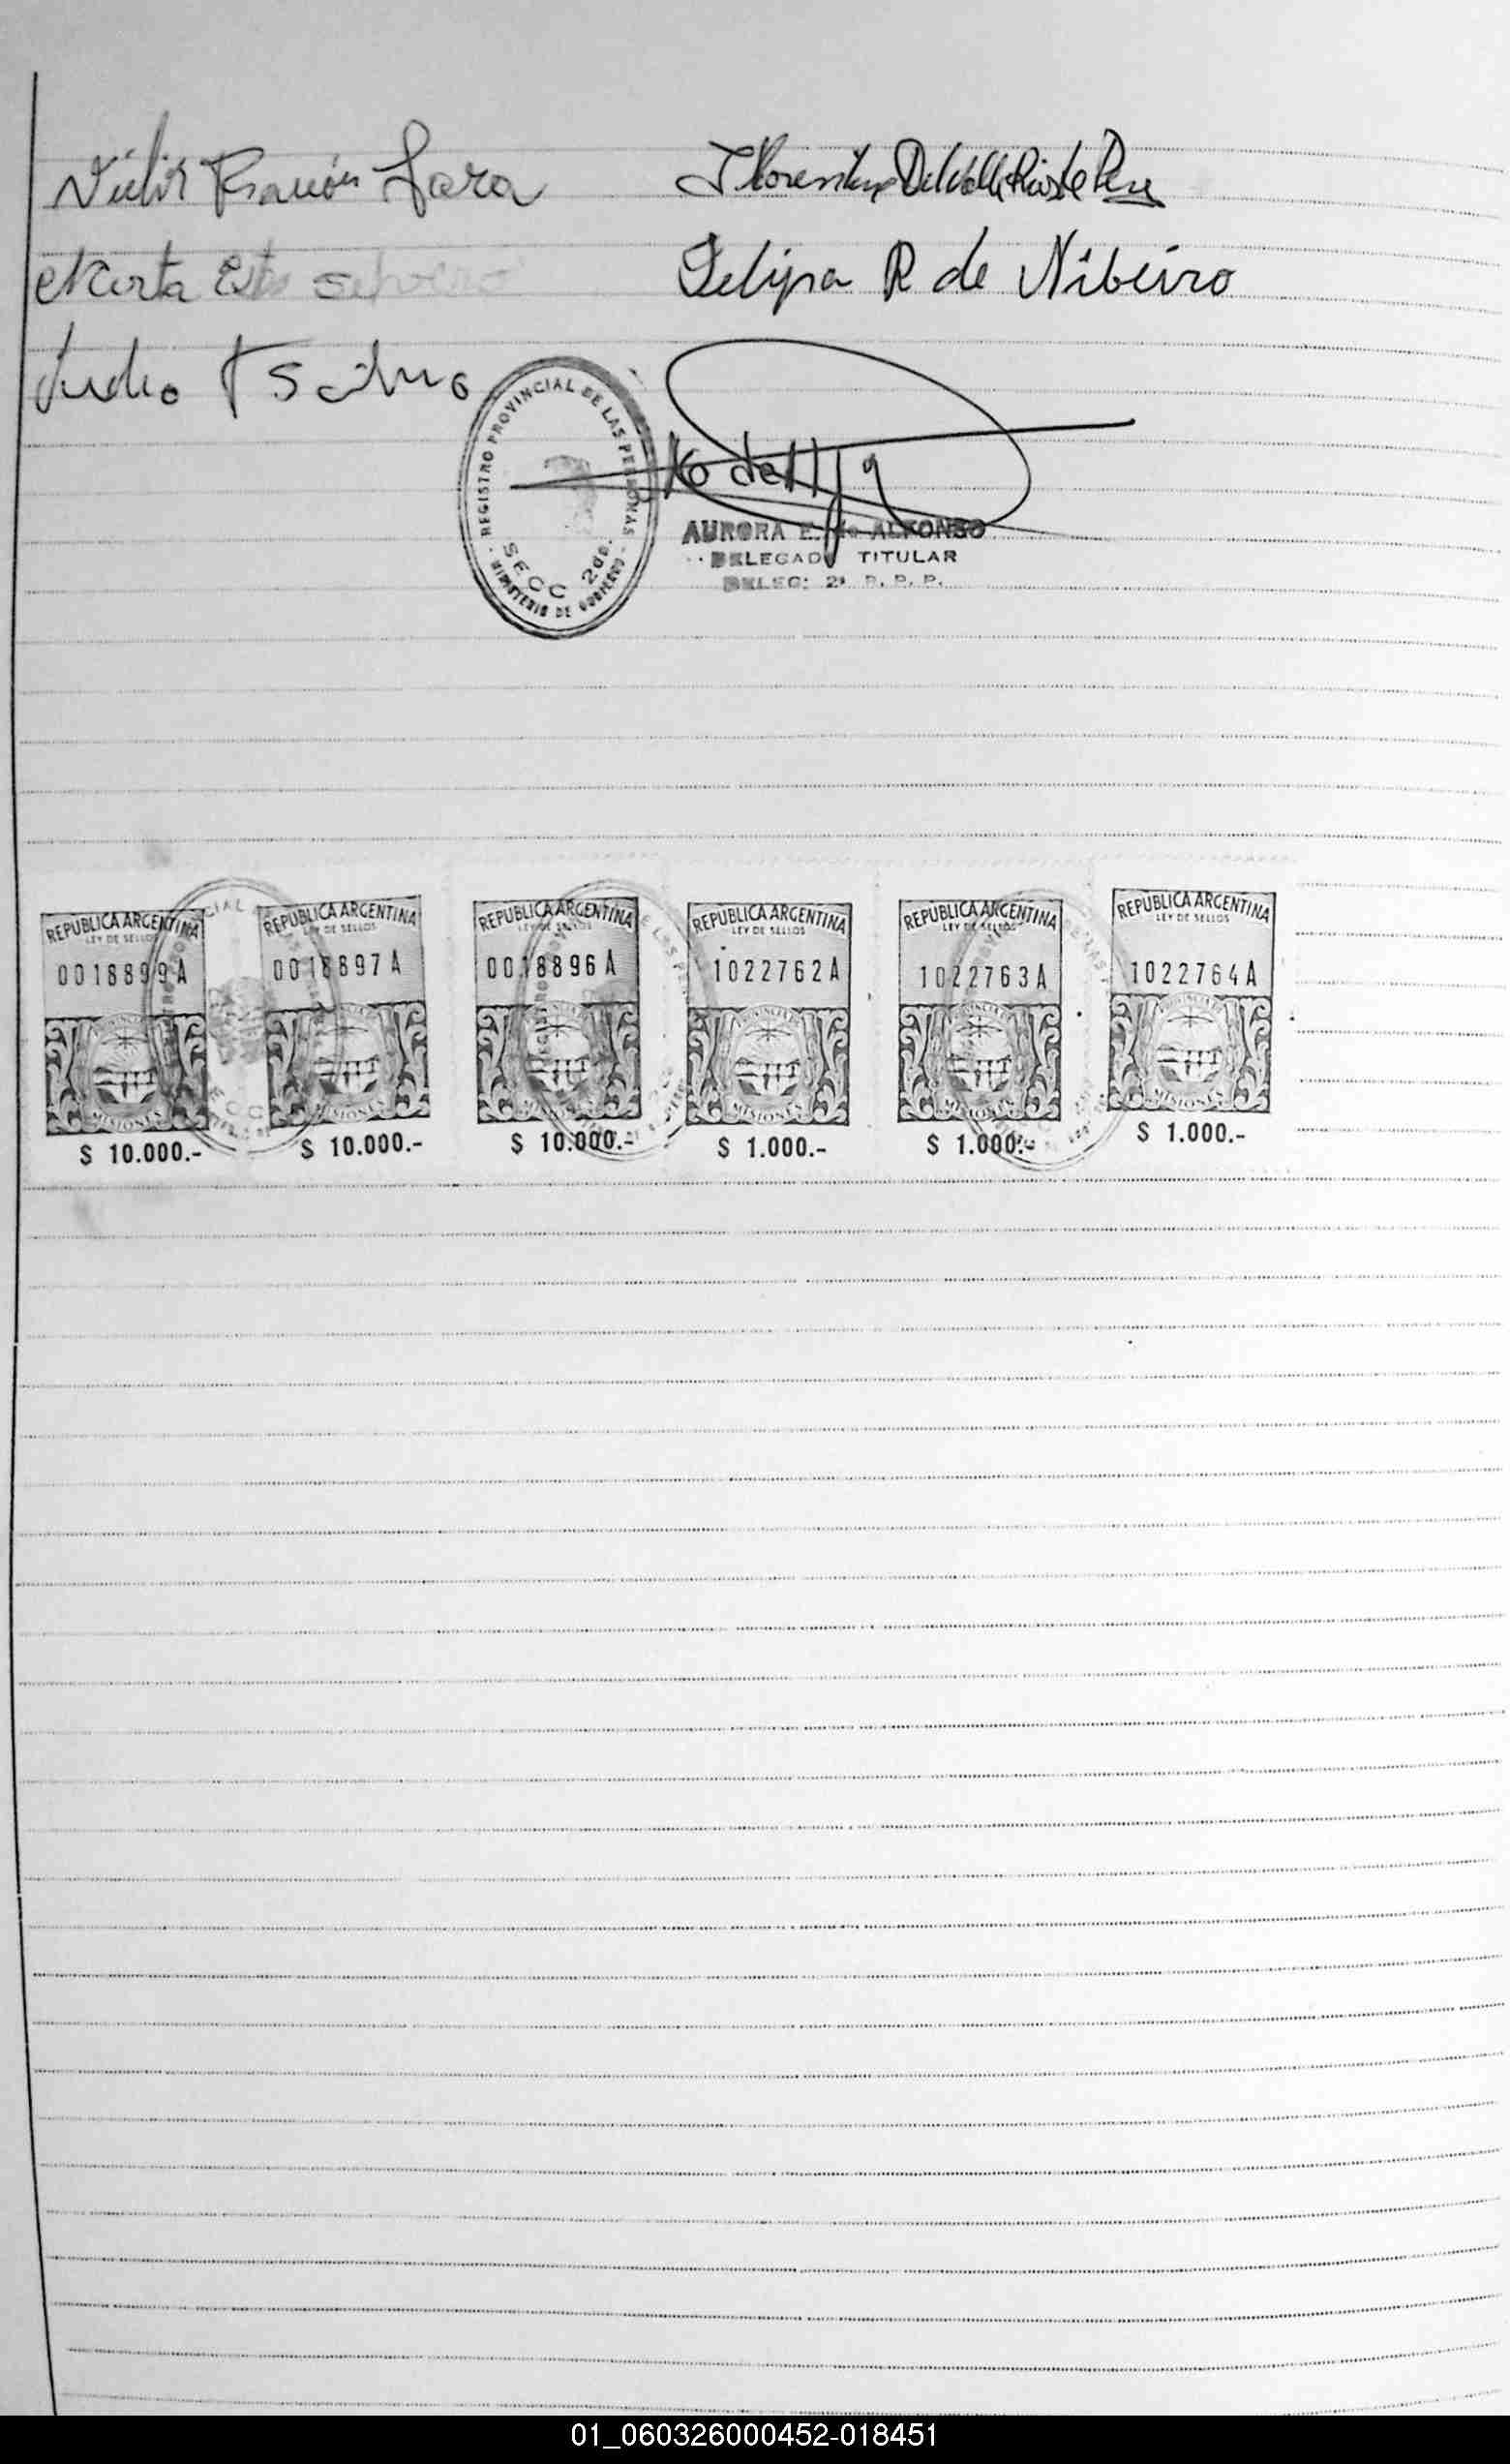 Victor Ramón Lara
Florentina Del Valle Rios de
Mirta
Felipa R de Ribeiro
Julio
REGISTRO PROVINCIAL DE LAS PERSONAS
SECC 2da.
MINISTERIO DE GOBIERNO
AURORA E. de ALFONSO
DELEGADO TITULAR
DELEG: 2ª R. P. P.
REPUBLICA ARGENTINA
LEY DE SELLOS
0018899A
MISIONES
$ 10.000.-
REPUBLICA ARGENTINA
LEY DE SELLOS
0018897A
MISIONES
$ 10.000.-
REPUBLICA ARGENTINA
LEY DE SELLOS
0018896A
MISIONES
$ 10.000.-
REPUBLICA ARGENTINA
LEY DE SELLOS
1022762A
MISIONES
$ 1.000.-
REPUBLICA ARGENTINA
LEY DE SELLOS
1022763A
MISIONES
$ 1.000.-
REPUBLICA ARGENTINA
LEY DE SELLOS
1022764A
MISIONES
$ 1.000.-
01_060326000452-018451